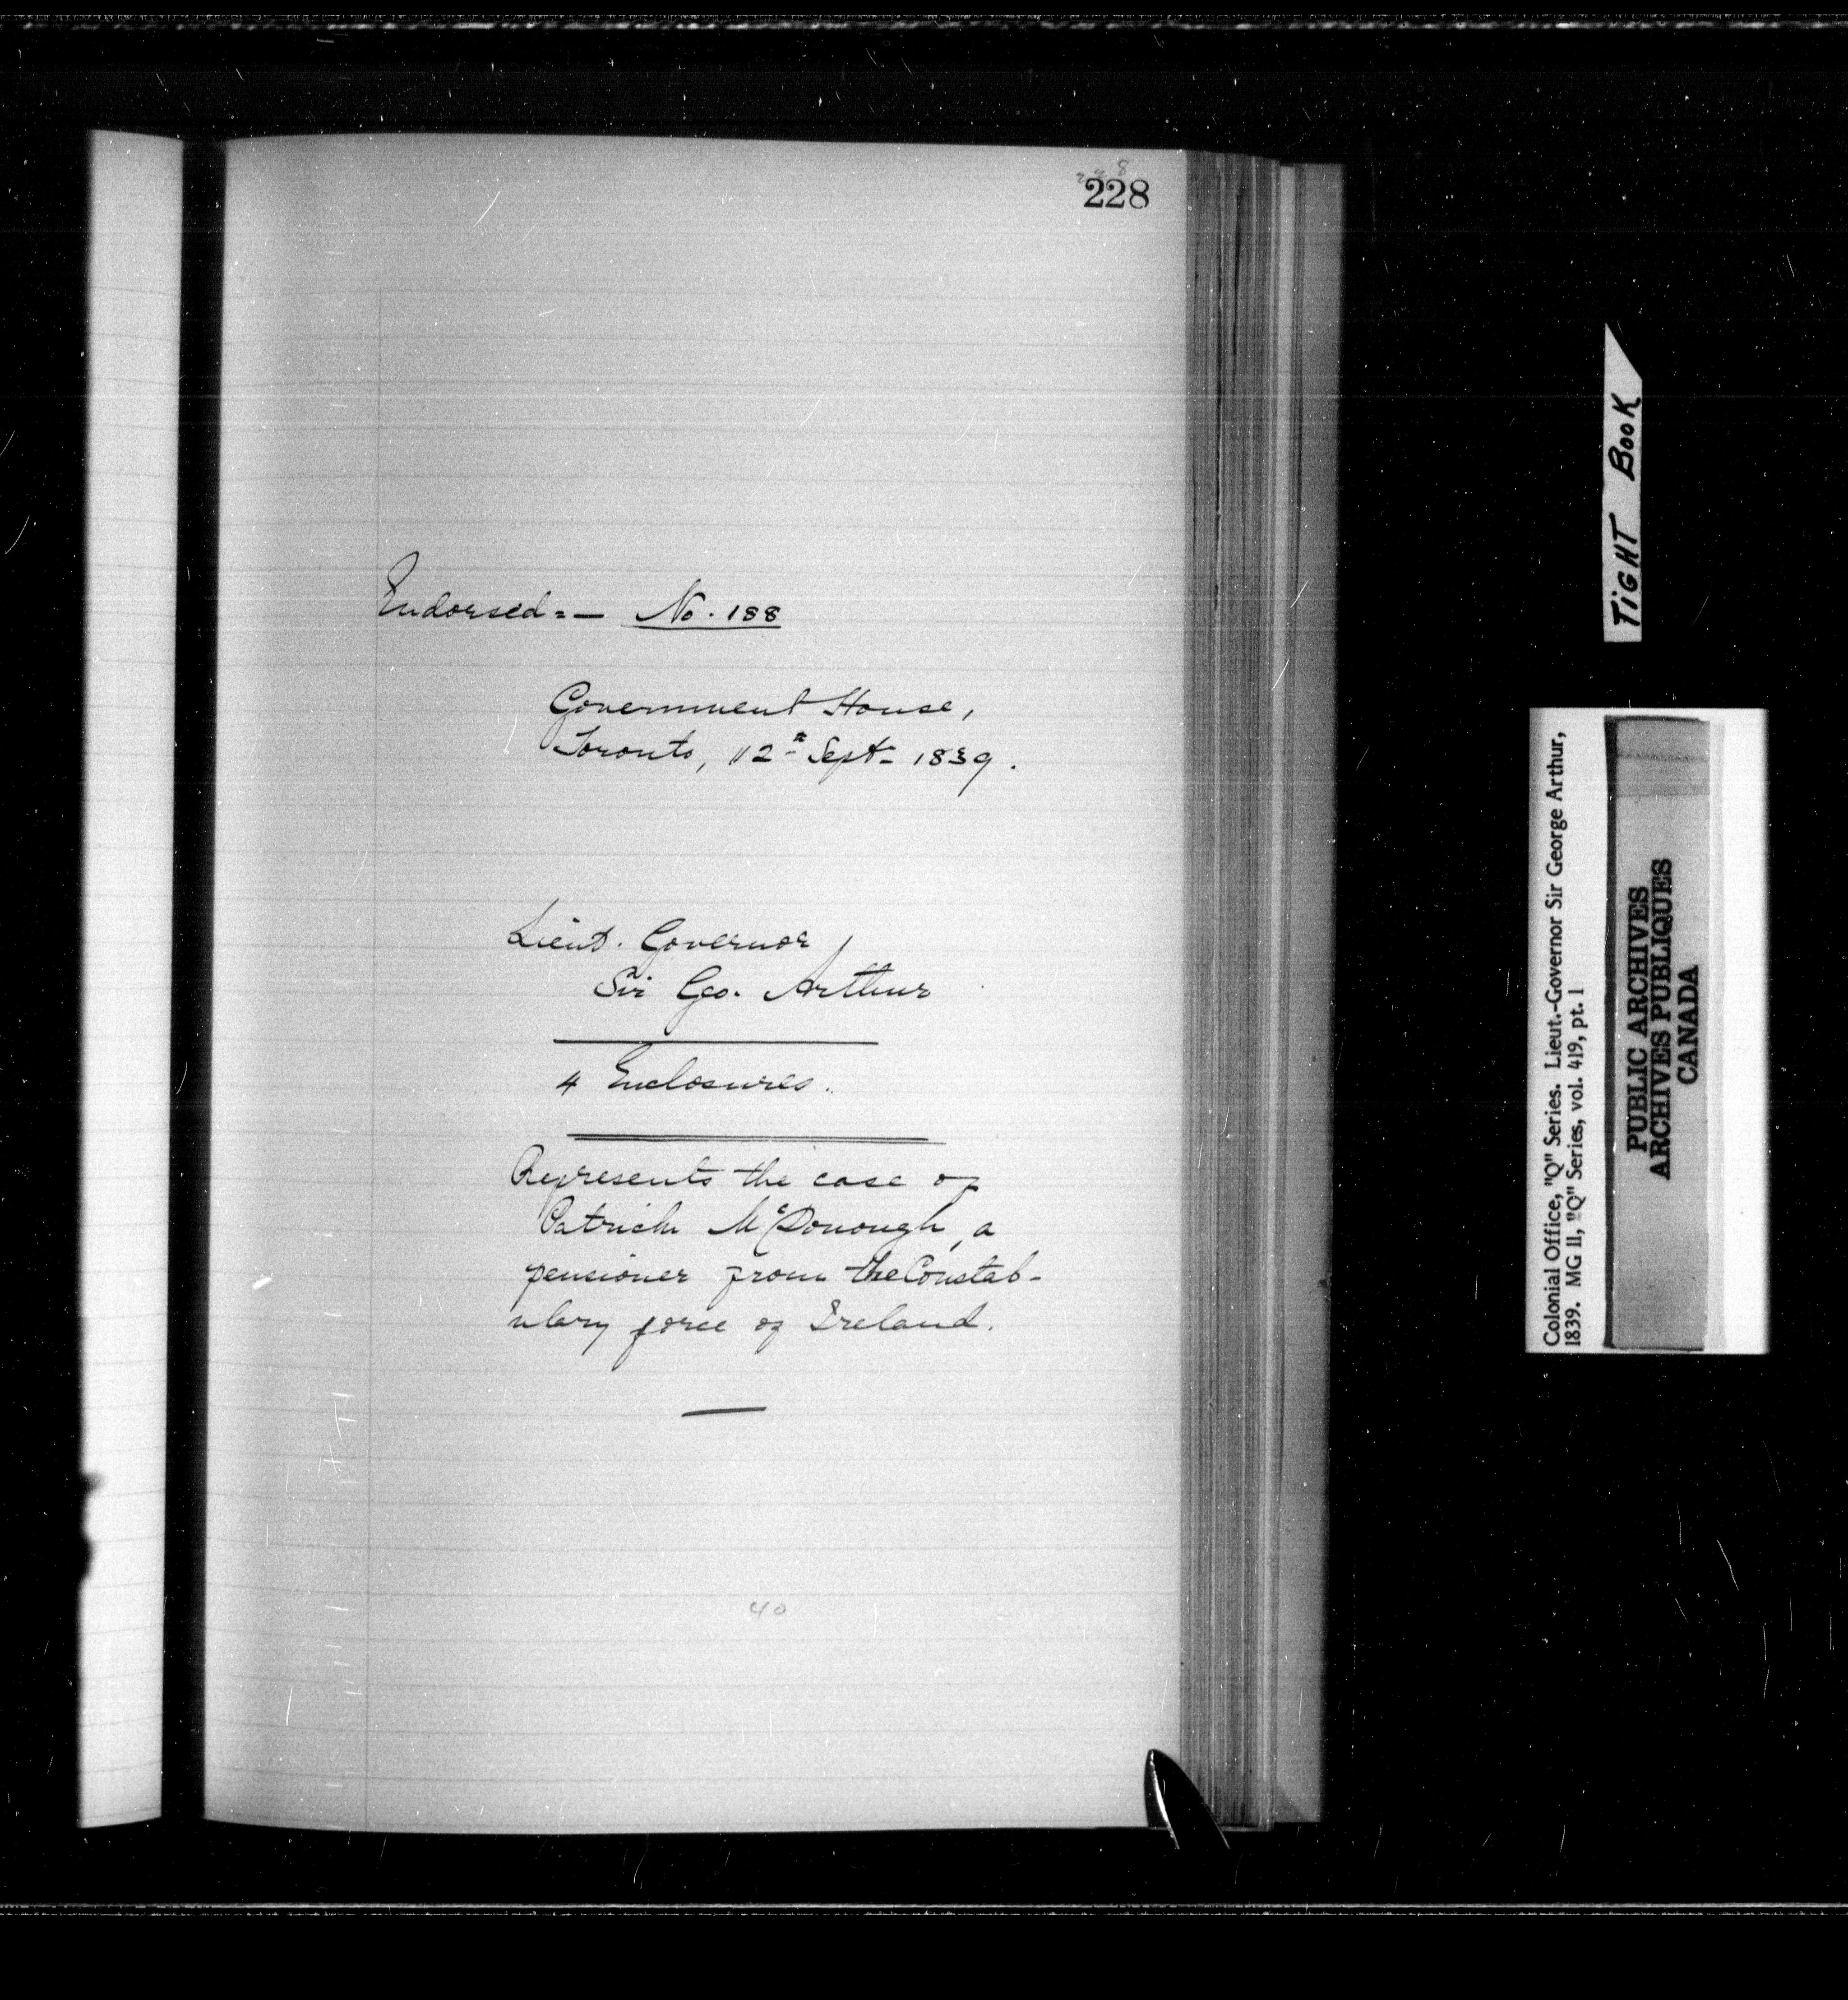 228
228
Endorsed=— No. 188
Government House,
Toronto, 12th Sept- 1839.
Lieut. Governor
Sir Geo. Arthur
4 Enclosures.
Represents the case of
Patrick McDonough, a
pensioner from the Constab-
ulary force of Ireland.
40
TIGHT BOOK
Colonial Office, "Q" Series. Lieut.-Governor Sir George Arthur,
1839. MG 11, "Q" Series, vol. 419, pt. 1
PUBLIC ARCHIVES
ARCHIVES PUBLIQUES
CANADA